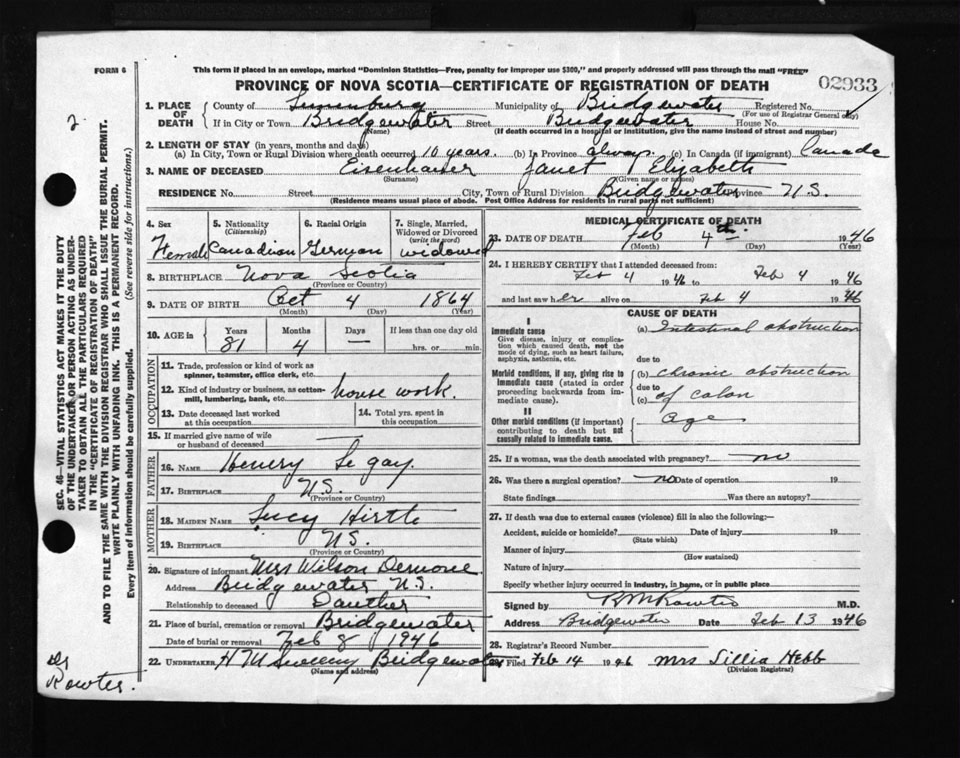 FORM 6
This form if placed in an envelope, marked "Dominion Statistics—Free, penalty for improper use $300," and properly addressed will pass through the mail "FREE"
PROVINCE OF NOVA SCOTIA—CERTIFICATE OF REGISTRATION OF DEATH
02933
1. PLACE OF DEATH County of Lunenburg Municipality of Bridgewater Registered No.
(For use of Registrar General only)
If in City or Town Bridgewater Street Bridgewater House No.
(Name) (If death occurred in a hospital or institution, give the name instead of street and number)
2. LENGTH OF STAY (in years, months and days)
(a) In City, Town or Rural Division where death occurred 10 years. (b) In Province always. (c) In Canada (if immigrant) Canada
3. NAME OF DECEASED Eisenhauer Janet Elizabeth
(Surname) (Given name or names)
RESIDENCE No. Street City, Town or Rural Division Bridgewater Province N.S.
(Residence means usual place of abode. Post Office Address for residents in rural parts not sufficient)
4. Sex 5. Nationality (Citizenship) 6. Racial Origin 7. Single, Married, Widowed or Divorced (write the word)
Female Canadian German widowed
8. BIRTHPLACE Nova Scotia
(Province or Country)
9. DATE OF BIRTH Oct 4 1864
(Month) (Day) (Year)
10. AGE in Years Months Days If less than one day old
81 4 — hrs. or min.
OCCUPATION
11. Trade, profession or kind of work as spinner, teamster, office clerk, etc.
12. Kind of industry or business, as cotton-mill, lumbering, bank, etc. house work.
13. Date deceased last worked at this occupation 14. Total yrs. spent in this occupation
15. If married give name of wife or husband of deceased
FATHER
16. NAME Henery Legay.
17. BIRTHPLACE N.S.
(Province or Country)
MOTHER
18. MAIDEN NAME Lucy Hirtle
19. BIRTHPLACE N.S.
(Province or Country)
20. Signature of informant Mrs Wilson Demone
Address Bridgewater N.S.
Relationship to deceased Dauther
21. Place of burial, cremation or removal Bridgewater
Date of burial or removal Feb 8 1946
22. UNDERTAKER H M Sweeny Bridgewater
(Name and address)
MEDICAL CERTIFICATE OF DEATH
23. DATE OF DEATH Feb 4th 1946
(Month) (Day) (Year)
24. I HEREBY CERTIFY that I attended deceased from:
Feb 4 1946 to Feb 4 1946
and last saw her alive on Feb 4 1946
CAUSE OF DEATH
I
Immediate cause (a) Intestinal obstruction
Give disease, injury or complication which caused death, not the mode of dying, such as heart failure, asphyxia, asthenia, etc. due to
Morbid conditions, if any, giving rise to immediate cause (stated in order proceeding backwards from immediate cause). (b) chronic obstruction
due to
(c) of colon
II
Other morbid conditions (if important) contributing to death but not causally related to immediate cause. age
25. If a woman, was the death associated with pregnancy? no
26. Was there a surgical operation? no Date of operation 19
State findings Was there an autopsy?
27. If death was due to external causes (violence) fill in also the following:—
Accident, suicide or homicide? Date of injury 19
(State which)
Manner of injury
(How sustained)
Nature of injury
Specify whether injury occurred in industry, in home, or in public place
Signed by M.D.
Address Bridgewater Date Feb 13 1946
28. Registrar's Record Number
29. Filed Feb 14 1946 Mrs Lillia Hebb
(Division Registrar)
2.
Dr
Rowter.
SEC. 46—VITAL STATISTICS ACT MAKES IT THE DUTY
OF THE UNDERTAKER OR PERSON ACTING AS UNDER-
TAKER TO OBTAIN ALL THE PARTICULARS REQUIRED
IN THE "CERTIFICATE OF REGISTRATION OF DEATH"
AND TO FILE THE SAME WITH THE DIVISION REGISTRAR WHO SHALL ISSUE THE BURIAL PERMIT.
WRITE PLAINLY WITH UNFADING INK. THIS IS A PERMANENT RECORD.
Every item of information should be carefully supplied. (See reverse side for instructions.)